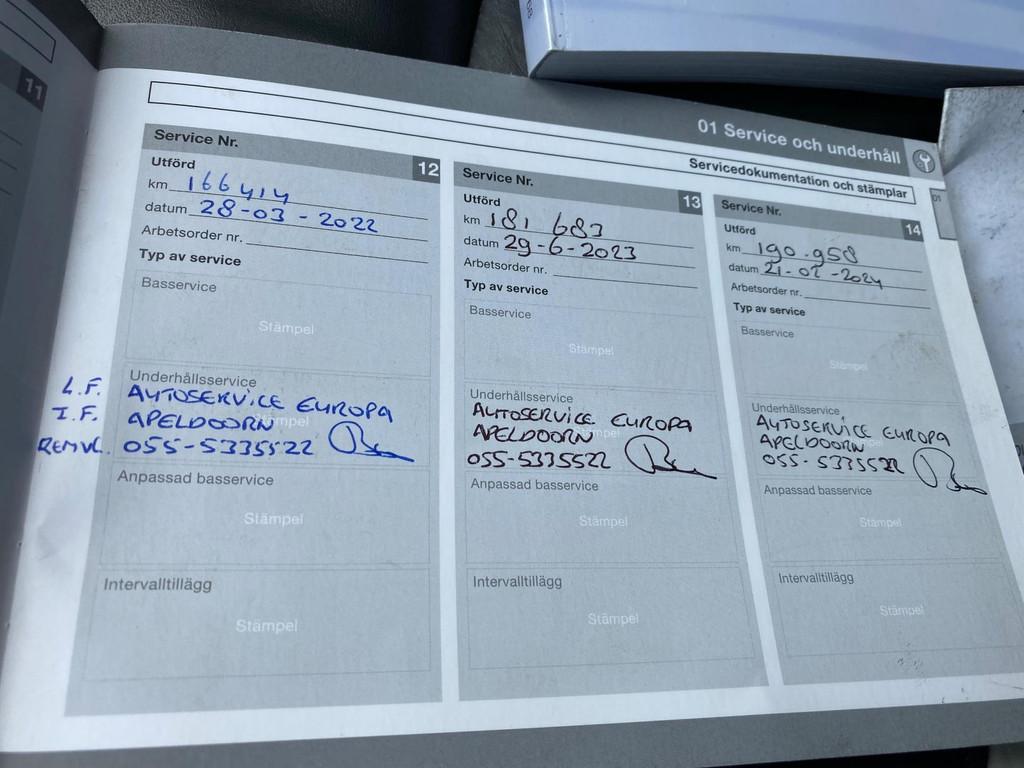 11
01 Service och underhåll
Servicedokumentation och stämplar
01
Service Nr. 12
Utförd
km 166414
datum 28-03-2022
Arbetsorder nr.
Typ av service
Basservice
Stämpel
Underhållsservice
L.F. AUTOSERVICE EUROPA
I.F. APELDOORN
REMVL. 055-5335522
Anpassad basservice
Stämpel
Intervalltillägg
Stämpel
Service Nr. 13
Utförd
km 181 683
datum 29-6-2023
Arbetsorder nr.
Typ av service
Basservice
Stämpel
Underhållsservice
AUTOSERVICE EUROPA
APELDOORN
055-5335522
Anpassad basservice
Stämpel
Intervalltillägg
Stämpel
Service Nr. 14
Utförd
km 190.958
datum 21-02-2024
Arbetsorder nr.
Typ av service
Basservice
Stämpel
Underhållsservice
AUTOSERVICE EUROPA
APELDOORN
055-5335522
Anpassad basservice
Stämpel
Intervalltillägg
Stämpel